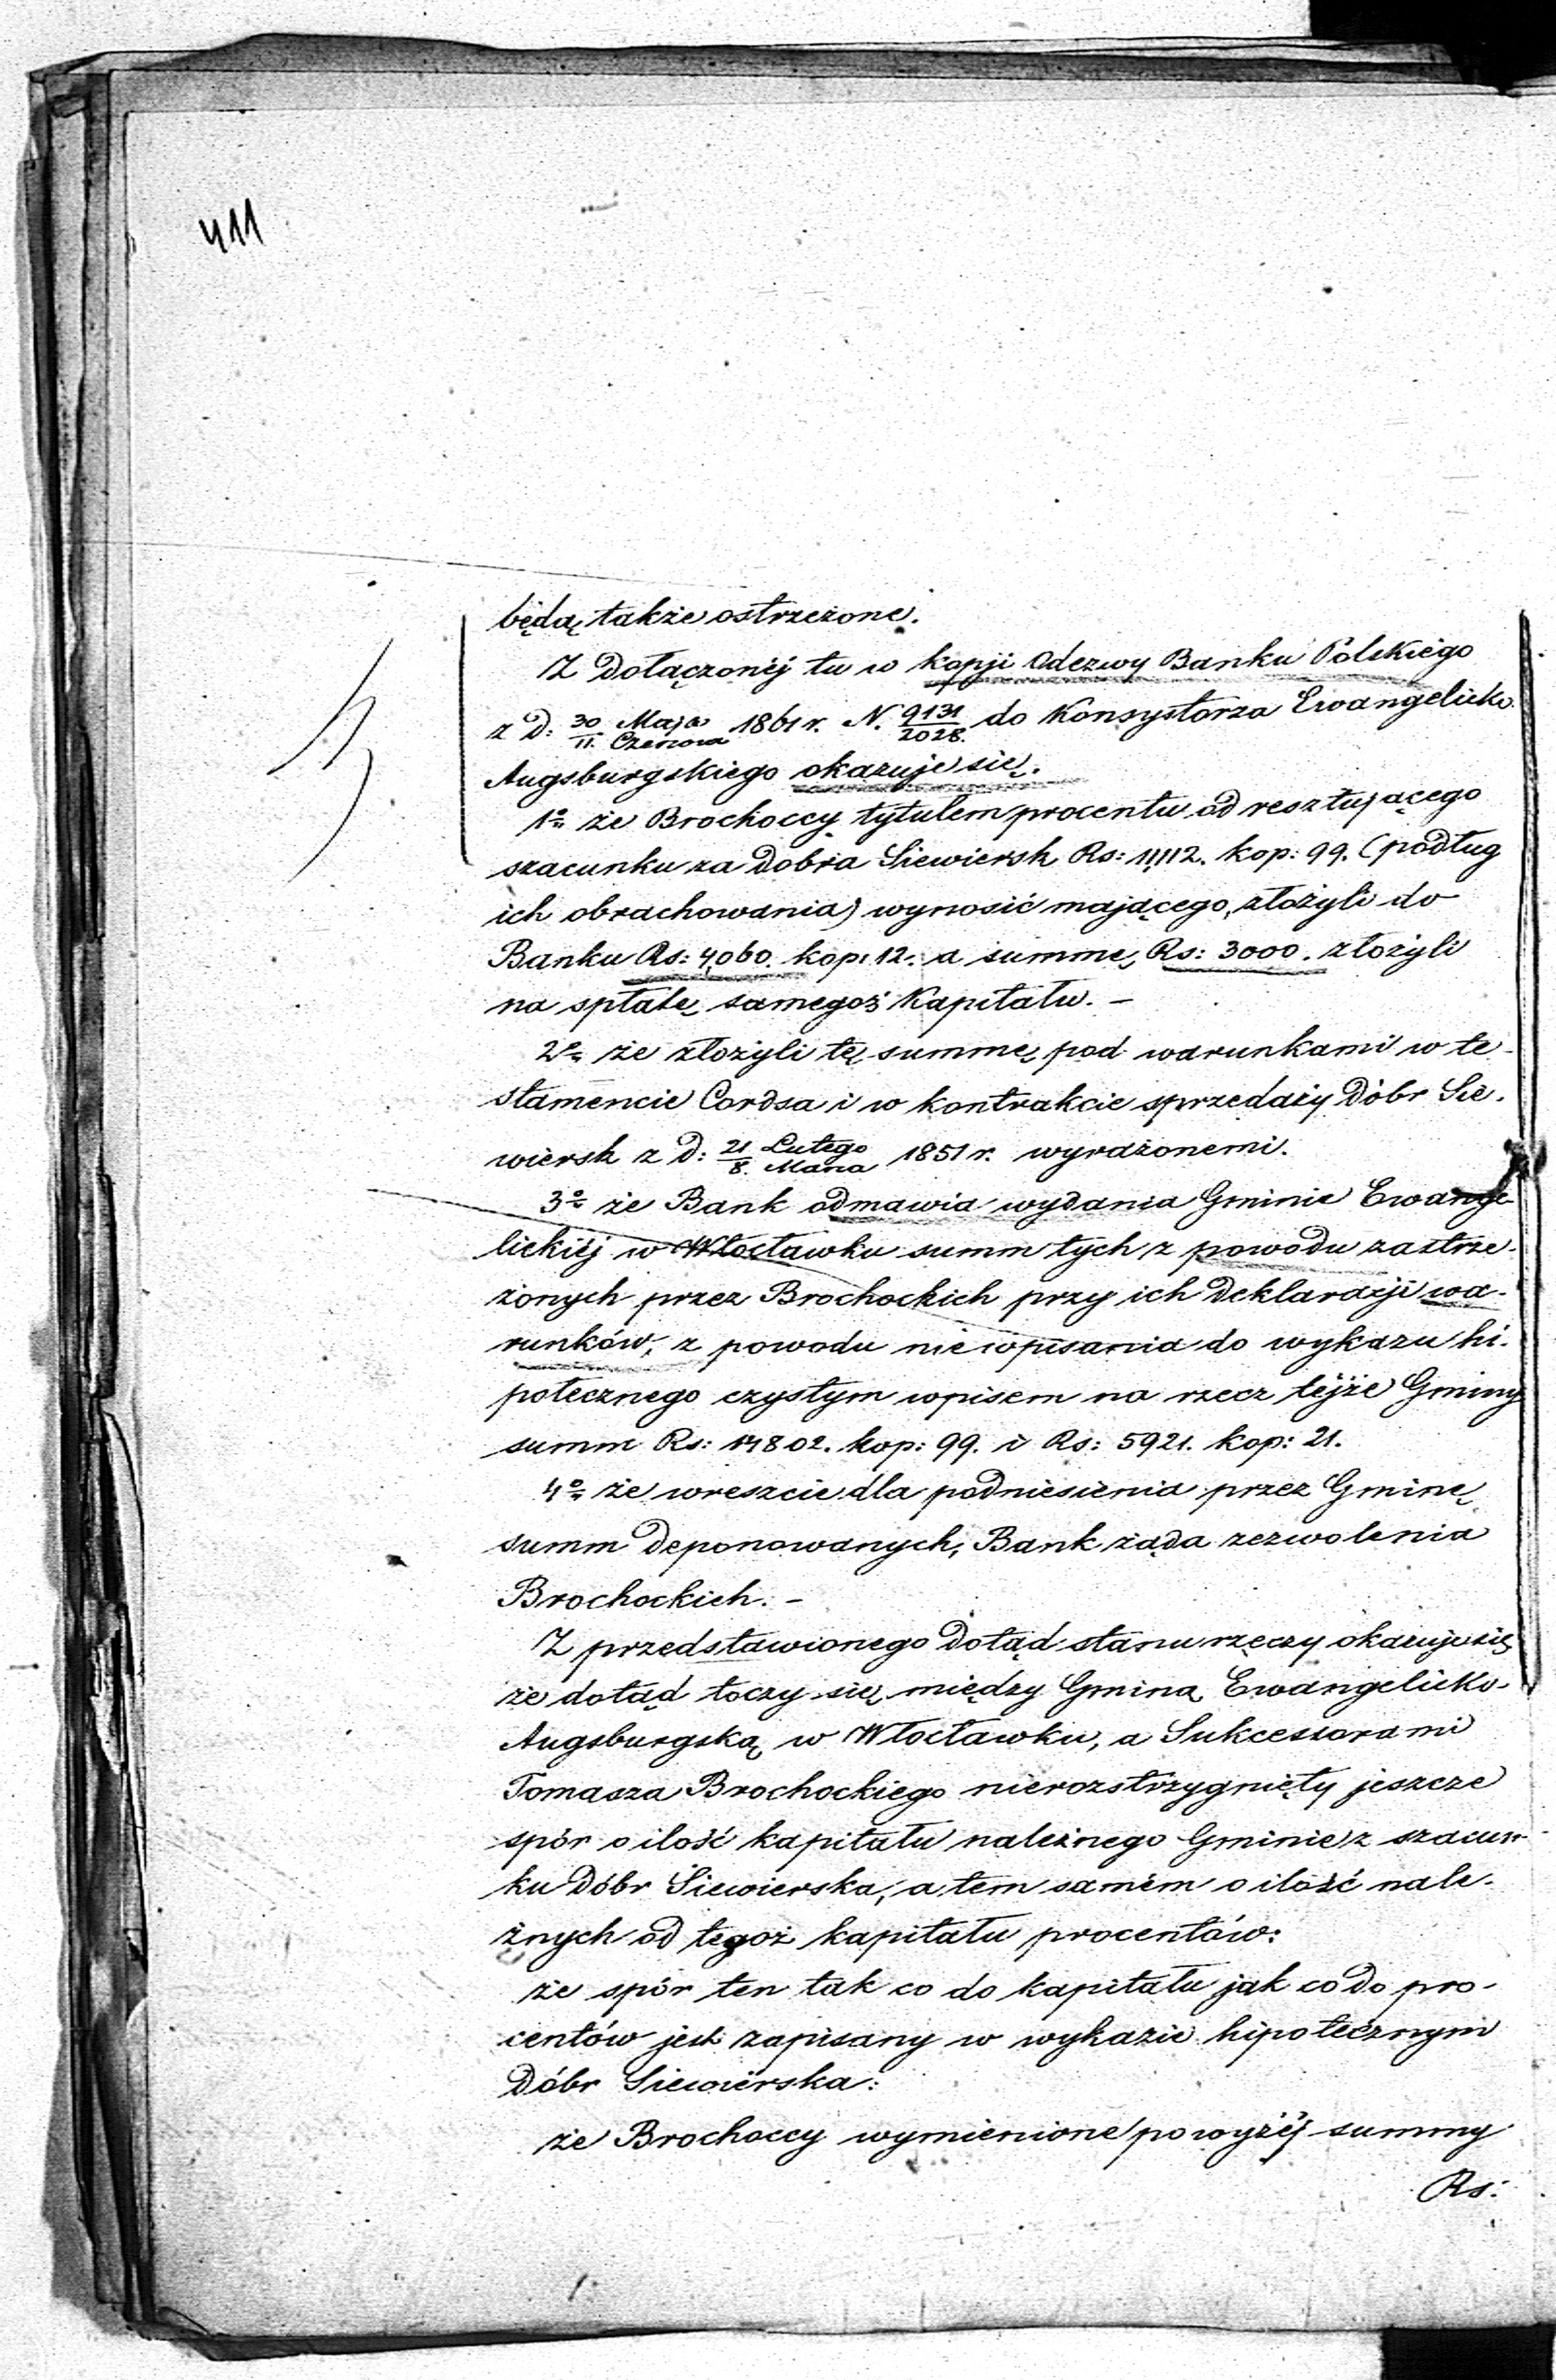 411
będą także ostrzeżone.
Z dołączonéj tu w kopji Odezwy Banku Polskiego
z D: 30 Maja / 11. Czerwca 1861 r. N. 9131/2028. do Konsystorza Ewangelicko
Augsburgskiego okazuje się.
1º że Brochoccy tytułem procentu od resztującego
szacunku za dobra Siewiersk Rs: 11,112. kop: 99. (podług
ich obrachowania) wynosić mającego, złożyli do
Banku Rs: 4,060. kop: 12. a summę Rs: 3000. złożyli
na spłatę samegoż Kapitału. –
2º że złożyli tę summę pod warunkami w te-
stamencie Cordsa i w kontrakcie sprzedaży Dóbr Sie-
wiersk z D: 21 Lutego / 8. Marca 1851 r. wyrażonemi.
3º że Bank odmawia wydania Gminie Ewange-
lickiéj w Włocławku summ tych z powodu zastrze-
żonych przez Brochockich przy ich Deklaracji wa-
runków, z powodu niewpisania do wykazu hi-
potecznego czystym wpisem na rzecz téjże Gminy
summ Rs: 14802. kop: 99. i Rs: 5921. kop: 21.
4º że wreszcie dla podniesienia przez Gminę
summ Deponowanych, Bank żąda zezwolenia
Brochockich. –
Z przedstawionego Dotąd stanu rzęczy okazuje się
że dotąd toczy się między Gminą Ewangelicko-
Augsburgską w Włocławku, a Sukcessorami
Tomasza Brochockiego nierozstrzygnięty jeszcze
spór o ilość kapitału należnego Gminie z szacun-
ku Dóbr Siewierska, a tem samém o ilość nale-
żnych od tegoż kapitału procentów:
że spór ten tak co do kapitału jak co Do pro-
centów jest zapisany w wykazie hipotecznym
Dóbr Siewierska:
że Brochoccy wymienione powyżéj summy
Rs: